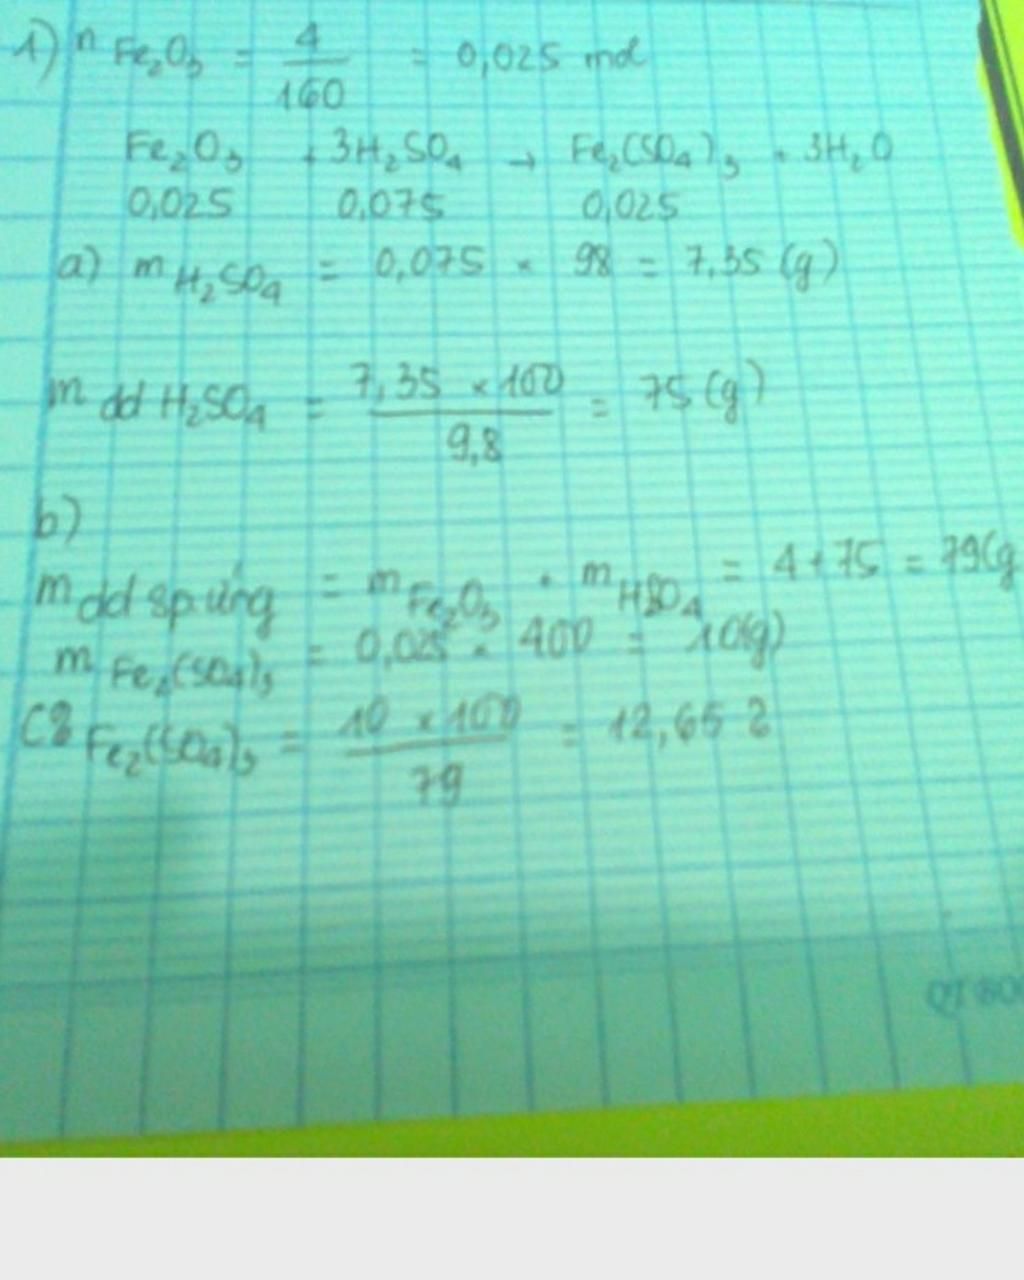 1) n Fe₂O₃ = 4/160 = 0,025 mol
Fe₂O₃ + 3H₂SO₄ → Fe₂(SO₄)₃ + 3H₂O
0,025 0,075 0,025
a) m H₂SO₄ = 0,075 × 98 = 7,35 (g)
m dd H₂SO₄ = 7,35 × 100/9,8 = 75 (g)
b)
m dd sp.ứng = m Fe₂O₃ + m HSO₄ = 4 + 75 = 79(g
m Fe₂(SO₄)₃ = 0,025 × 400 = 10(g)
C% Fe₂(SO₄)₃ = 10 × 100/79 = 12,65 %